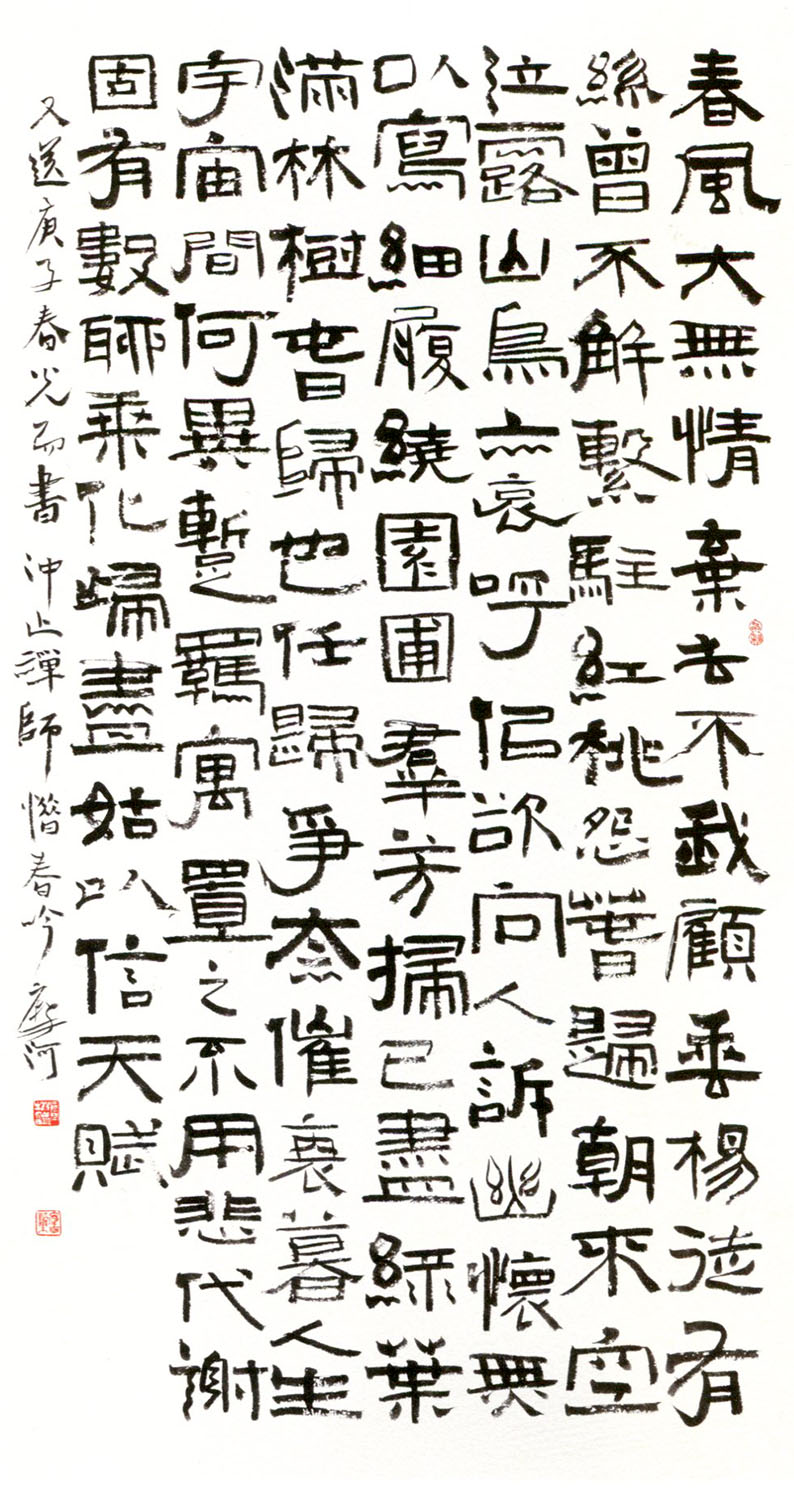 春風大無情棄去不我顧垂楊徒有
絲曾不解繫駐紅桃怨萅歸朝來空
泣露山鳥亦哀呼似欲向人訴幽懷無
以寫細履繞園圃羣芳掃已盡綠葉
滿林樹旾歸也任歸爭奈催衰暮人生
宇宙間何異暫羈寓置之不用悲代謝
固有數聊乘化歸盡姑以信天賦
又送庚子春光而書 沖止禪師惜春吟 摩河